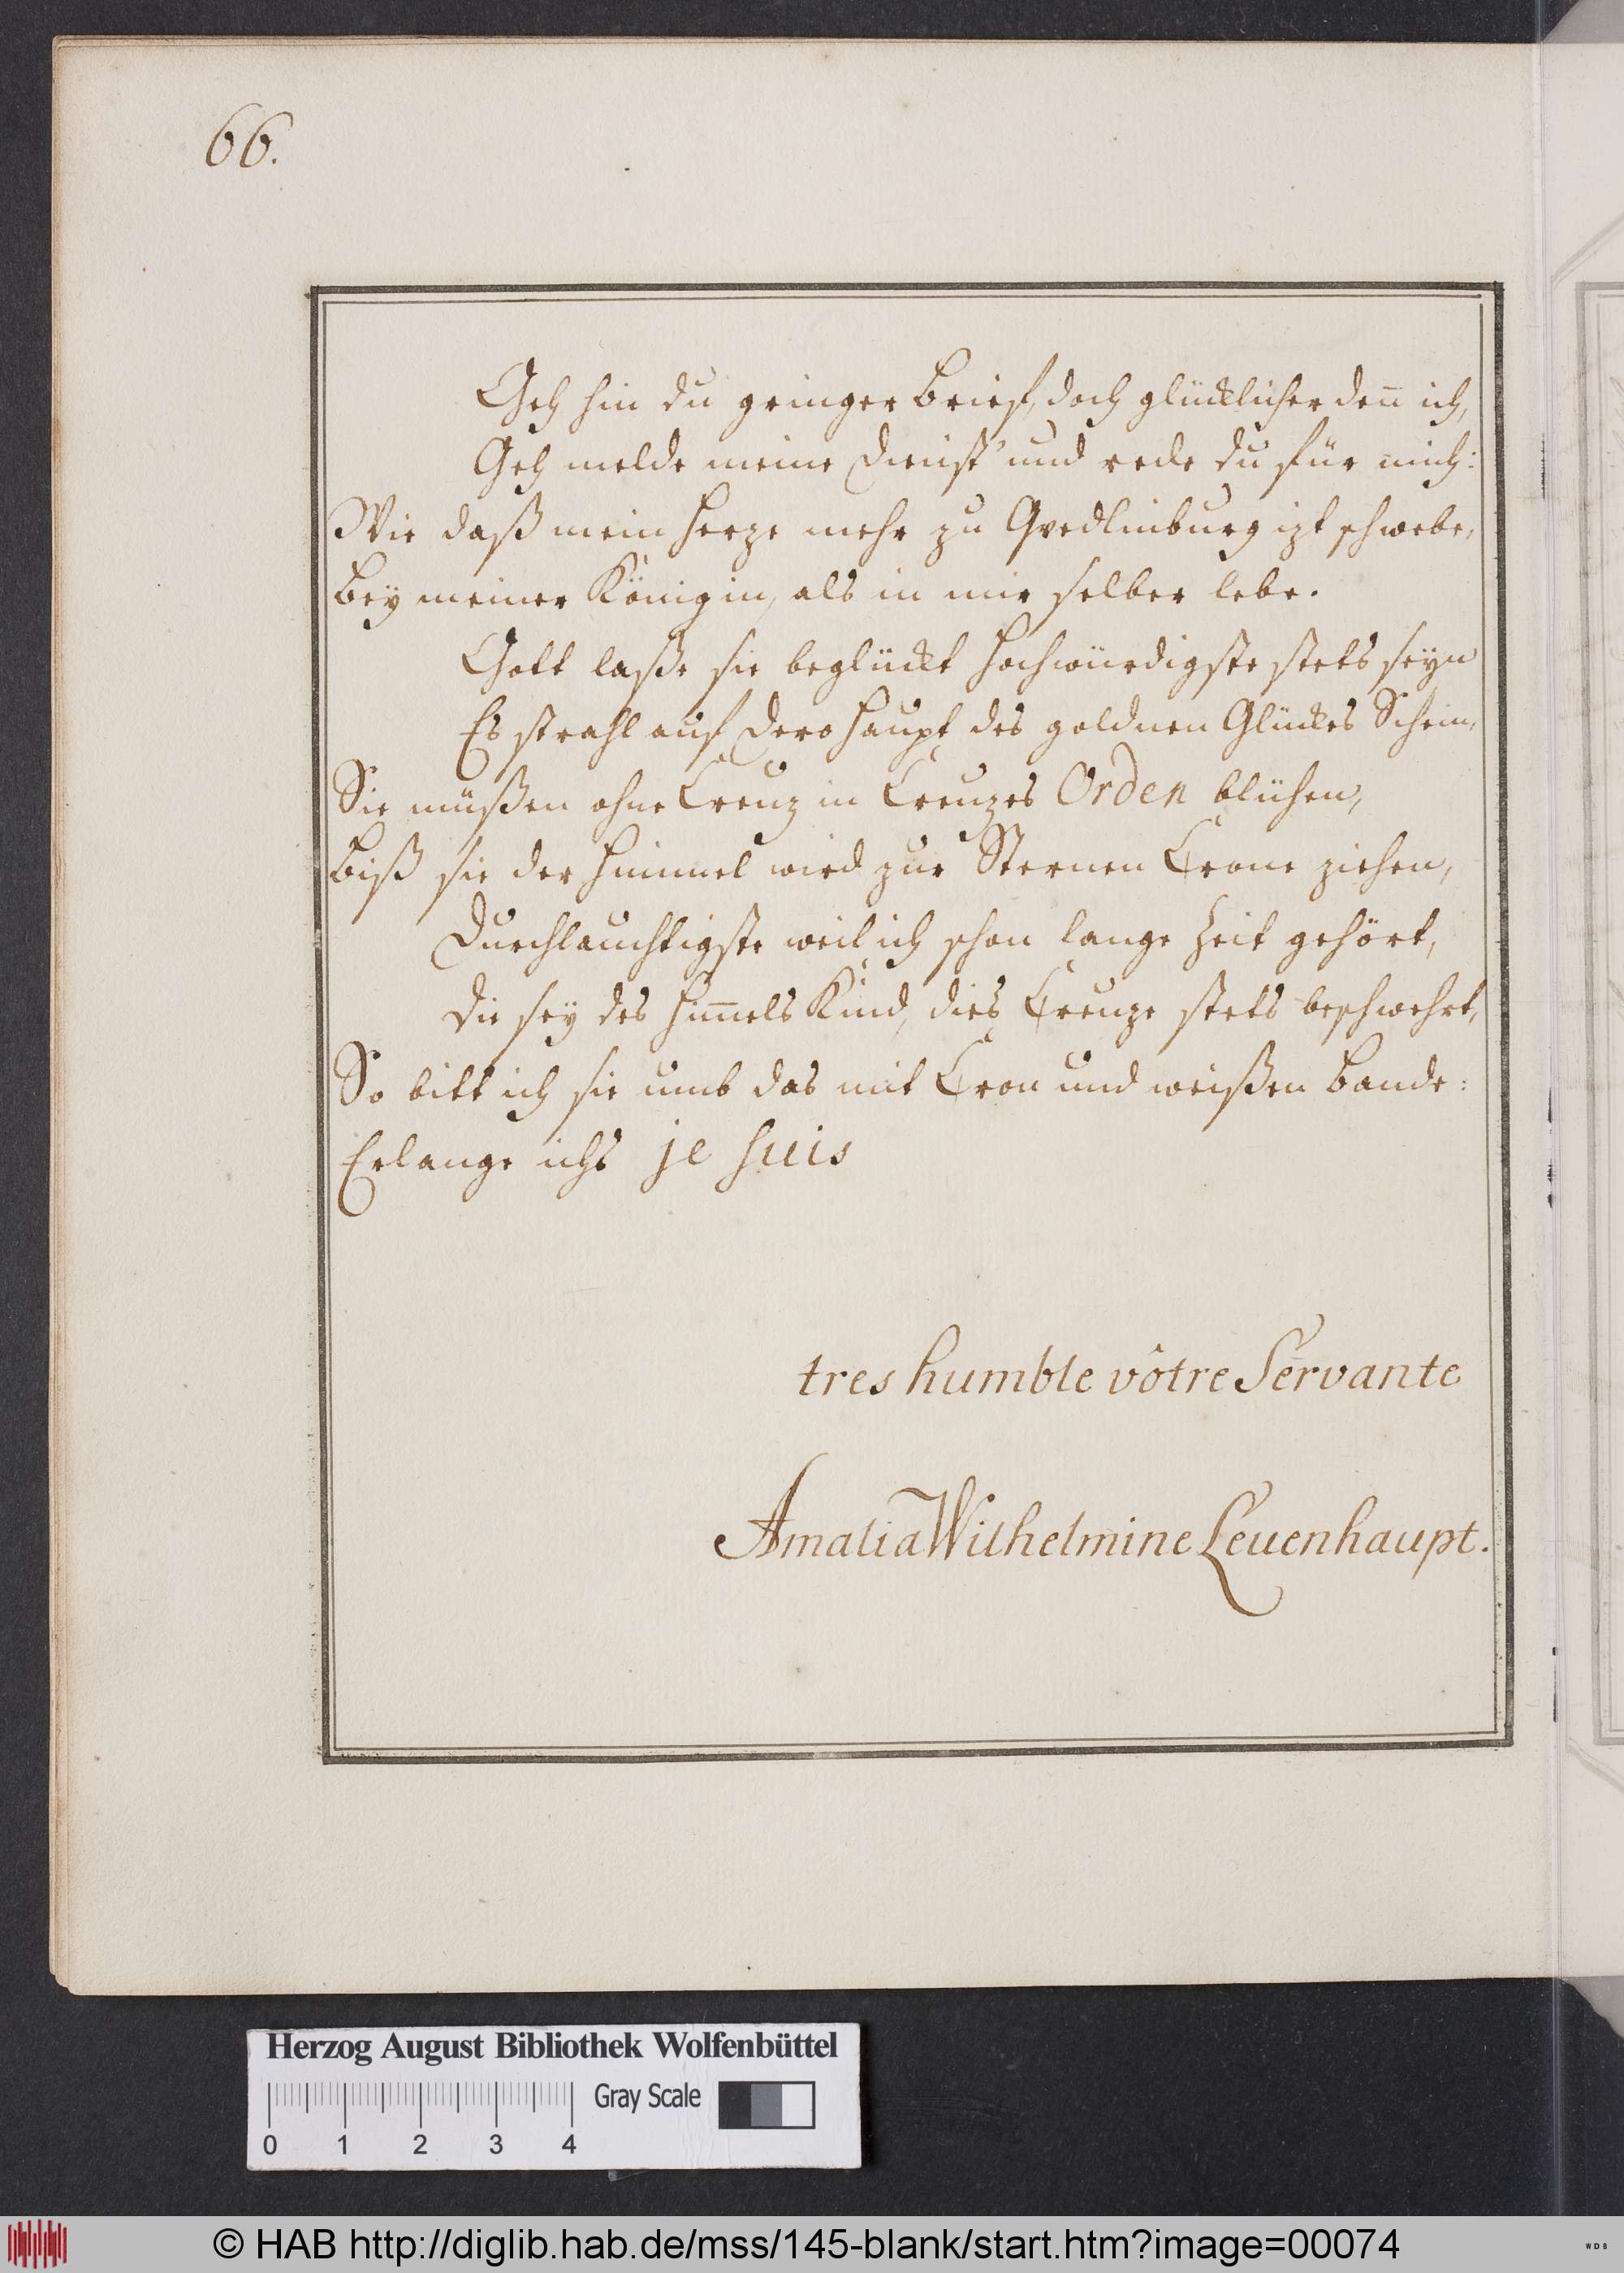 66.
Geh hin du geringer Brief, doch glücklicher den̄ ich,
Geh melde meine Dienst' und rede du für mich:
Wie daß mein Herze mehr zu Qvedlinburg izt schwebe,
Bey meiner Königin, als in mir selber lebe.
Gott laße sie beglückt Hochwürdigste stets seyn
Es strahl auf Dero Haupt des goldnen Glückes Schein,
Sie müßen ohne Creuz in Creuzes Orden blühen,
Biß sie der Himmel wird zur Sternen Crone ziehen,
Durchlauchtigste weil ich schon lange Zeit gehört,
Die sey des Him̄els Kind, dies Creuze stets beschwehrt,
So bitt ich sie umb das mit Cron und weißen Bande:
Erlange ichs je suis
tres humble vôtre Servante
Amalia Wilhelmine Leuenhaupt.
Herzog August Bibliothek Wolfenbüttel
Gray Scale
0 1 2 3 4
© HAB http://diglib.hab.de/mss/145-blank/start.htm?image=00074
WDB